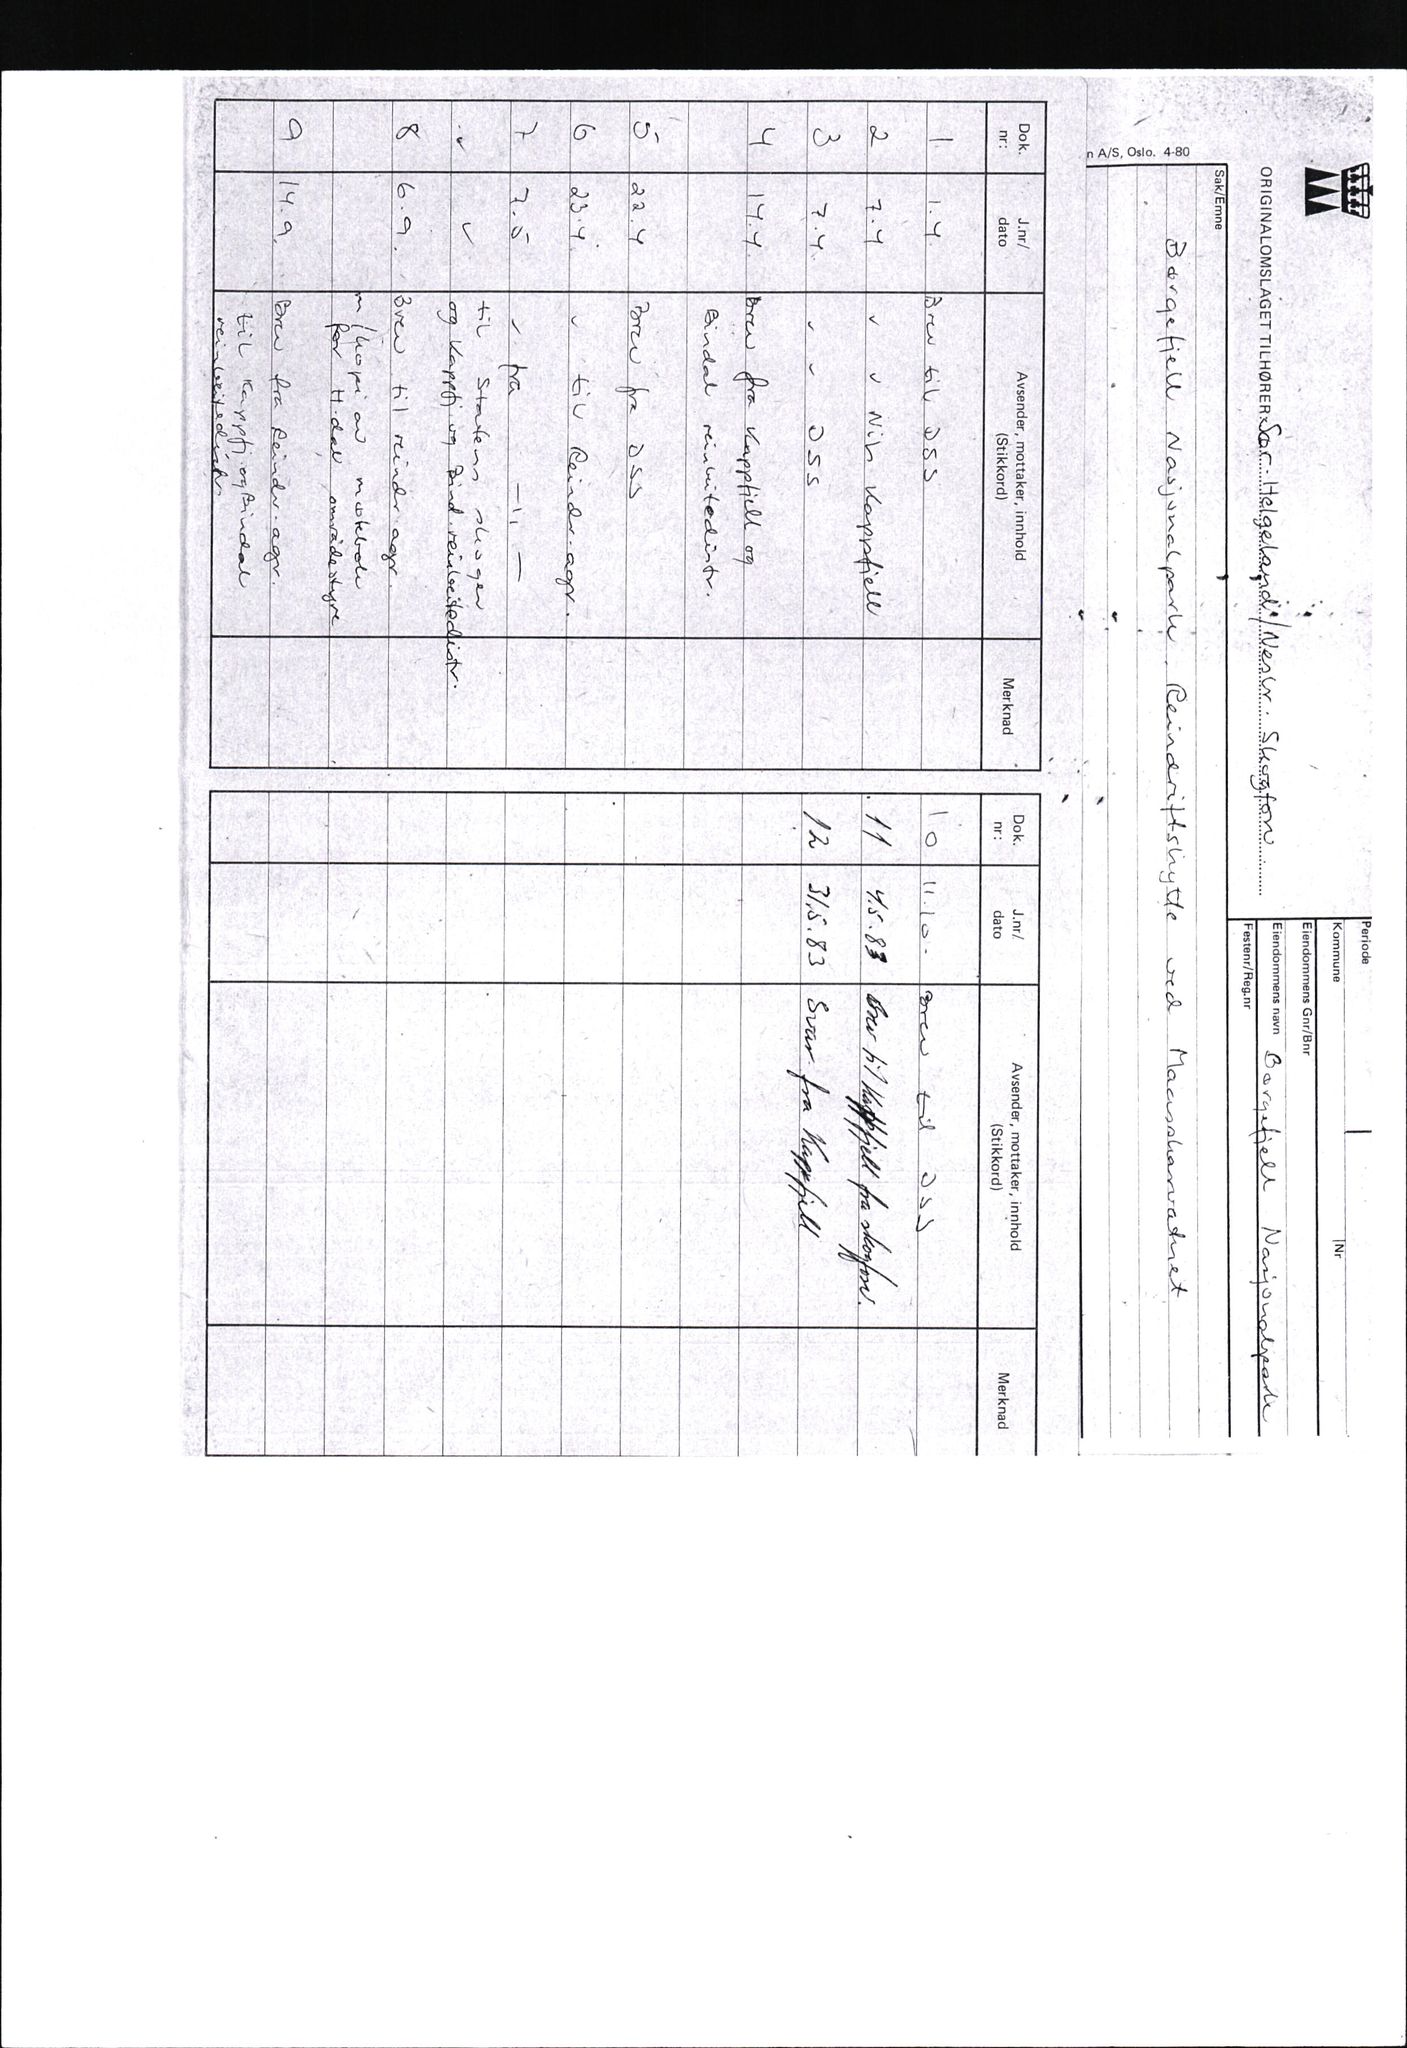 Periode
Kommune
Nr
Eiendommens Gnr/Bnr
Eiendommens navn Børgefjell Nasjonalpark
Festenr/Reg.nr
ORIGINALOMSLAGET TILHØRER: Sør-Helgeland/Nesnr. Skogforv
Sak/Emne
Børgefjell Nasjonalpark. Reindriftshytte ved Maasskarvatnet
n A/S, Oslo. 4-80
Dok. nr: J.nr/ dato Avsender, mottaker, innhold (Stikkord) Merknad
1 1.4 Brev til DSS
2 7.4 " " Nils Kappfjell
3 7.4. " " DSS
4 14.4. Brev fra Kappfjell og
Bindal reinbeitedistr.
5 22.4 Brev fra DSS
6 23.4. " til Reindr.agr.
7 7.5 " fra —"—
" " til Statens skoger
og Kappfj. og Bind. reinbeitedistr.
8 6.9. Brev til reindr.agr.
m/kopi av møtebok
for H.dal områdestyre
9 14.9. Brev fra Reindr.agr.
til Kappfj. og Bindal
reinbeitedistr.
Dok. nr: J.nr/ dato Avsender, mottaker, innhold (Stikkord) Merknad
10 11.10. Brev til DSS
11 4.5.83 Brev til Kappfjell fra skogforv.
12 31.5.83 Svar fra Kappfjell